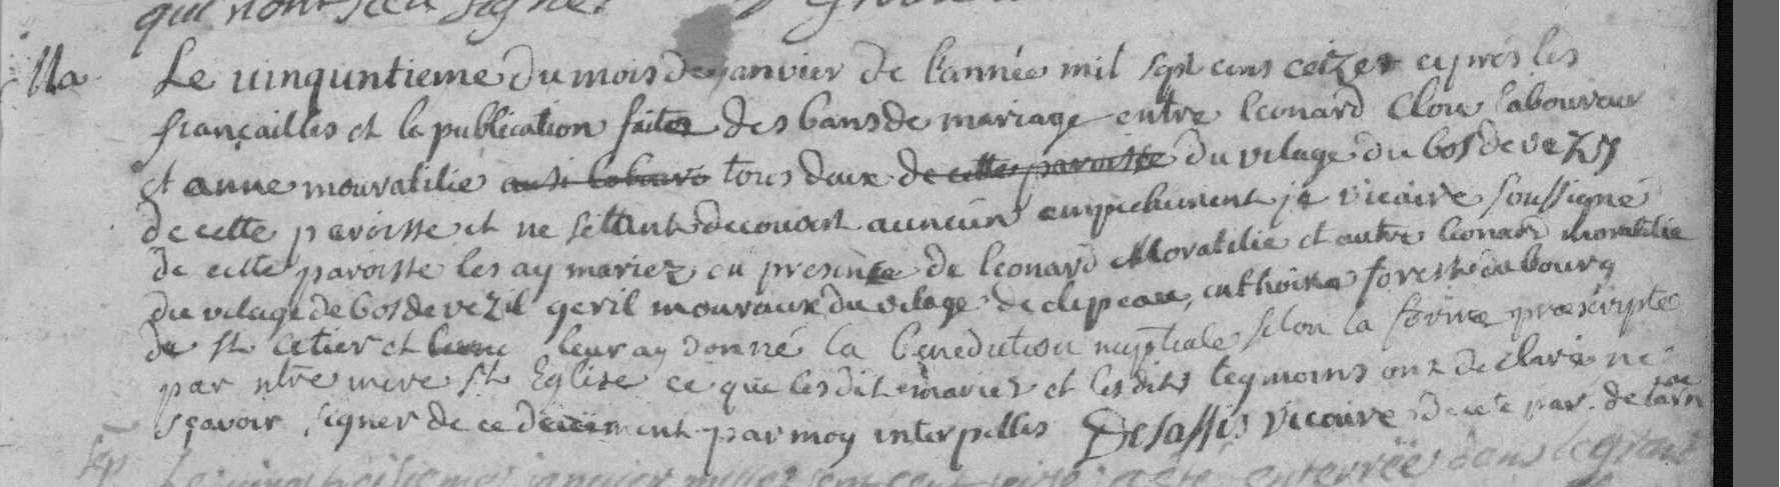 qui n'ont sceu signé.
Ma Le vinquntieme du mois de janvier de l'année mil sept cens ceize et apres les
fiançailles et la publication faites des bans de mariage entre leonard Clou laboureur
et anne mouratilie aussi laboure tous deux de cette paroisse du vilage du bos de vezy
de cette paroisse et ne s'étant decouvert auncun empechement je vicaire soussigné
de cette paroisse les ay mariez en presence de leonard Moratilie et autre leonard moratilie
du vilage de bos de vezil geril mouraux du vilage de clupeau, anthoine forest du bourg
de st cetier et leur ay donné la benediction nuptiale selon la forme prescripte
par ntre mere st Eglise ce que lesdit mariez et lesdits tegmoins ont declaré ne
sçavoir signer de ce deument par moy interpellés Delassis vicaire de cete par. de tarn
Sep